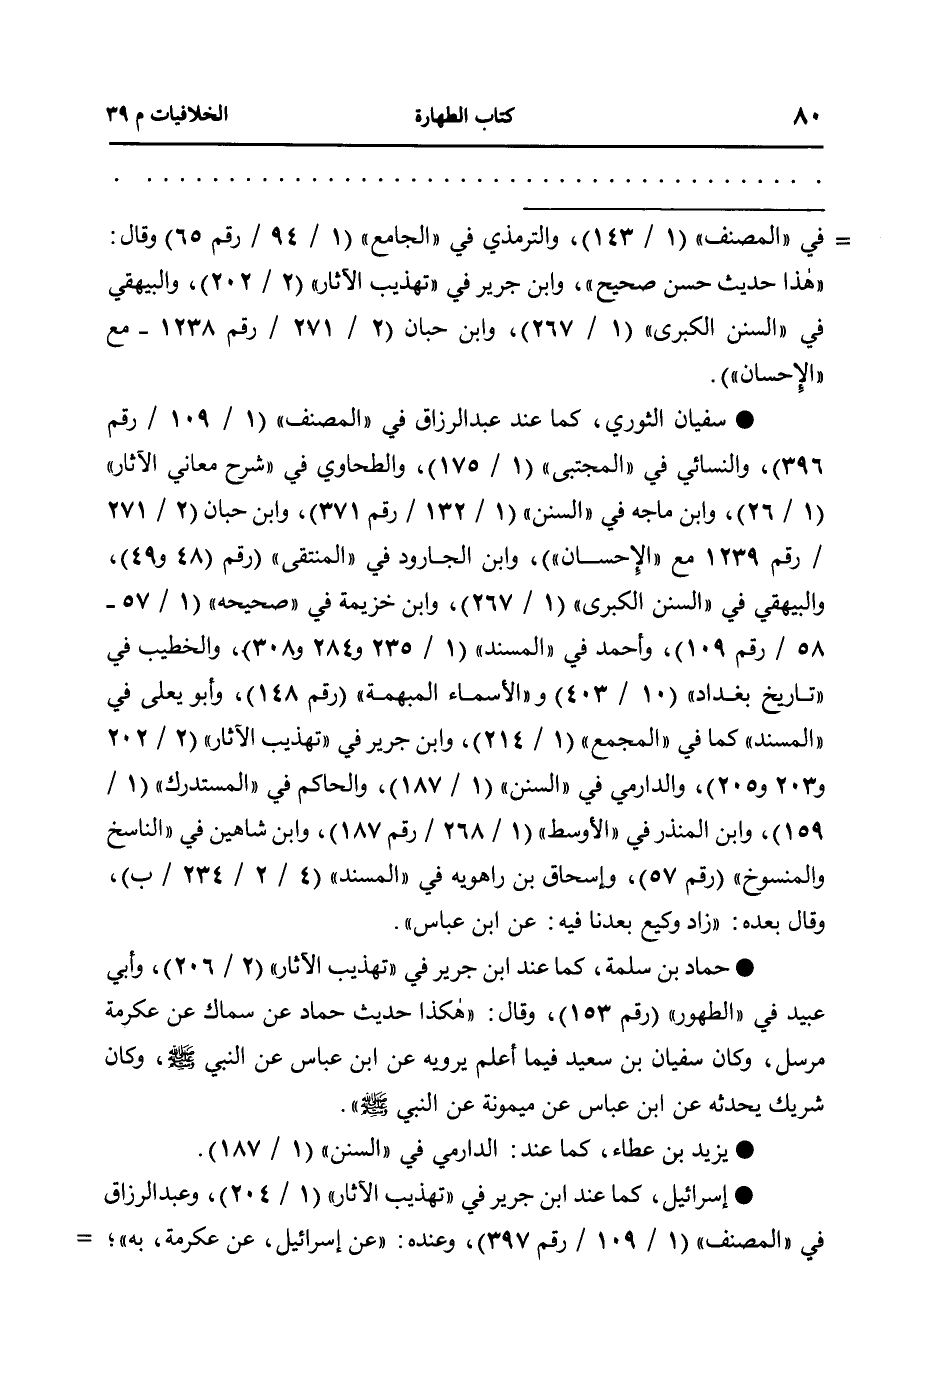 ٨٠ كتاب الطهارة الخلافيات م ٣٩
. . . . . . . . . . . . . . . . . . . . . . . . . . . . . . . . . . . .
= في «المصنف» (١ / ١٤٣)، والترمذي في «الجامع» (١ / ٩٤ / رقم ٦٥) وقال:
«هٰذا حديث حسن صحيح»، وابن جرير في «تهذيب الآثار» (٢ / ٢٠٢)، والبيهقي
في «السنن الكبرى» (١ / ٢٦٧)، وابن حبان (٢ / ٢٧١ / رقم ١٢٣٨ ـ مع
«الإحسان»).
● سفيان الثوري، كما عند عبدالرزاق في «المصنف» (١ / ١٠٩ / رقم
٣٩٦)، والنسائي في «المجتبى» (١ / ١٧٥)، والطحاوي في «شرح معاني الآثار»
(١ / ٢٦)، وابن ماجه في «السنن» (١ / ١٣٢ / رقم ٣٧١)، وابن حبان (٢ / ٢٧١
/ رقم ١٢٣٩ مع «الإحسان»)، وابن الجارود في «المنتقى» (رقم (٤٨ و٤٩)،
والبيهقي في «السنن الكبرى» (١ / ٢٦٧)، وابن خزيمة في «صحيحه» (١ / ٥٧ ـ
٥٨ / رقم ١٠٩)، وأحمد في «المسند» (١ / ٢٣٥ و٢٨٤ و٣٠٨)، والخطيب في
«تاريخ بغداد» (١٠ / ٤٠٣) و«الأسماء المبهمة» (رقم ١٤٨)، وأبو يعلى في
«المسند» كما في «المجمع» (١ / ٢١٤)، وابن جرير في «تهذيب الآثار» (٢ / ٢٠٢
و٢٠٣ و٢٠٥)، والدارمي في «السنن» (١ / ١٨٧)، والحاكم في «المستدرك» (١ /
١٥٩)، وابن المنذر في «الأوسط» (١ / ٢٦٨ / رقم ١٨٧)، وابن شاهين في «الناسخ
والمنسوخ» (رقم ٥٧)، وإسحاق بن راهويه في «المسند» (٤ / ٢ / ٢٣٤ / ب)،
وقال بعده: «زاد وكيع بعدنا فيه: عن ابن عباس».
● حماد بن سلمة، كما عند ابن جرير في «تهذيب الآثار» (٢ / ٢٠٦)، وأبي
عبيد في «الطهور» (رقم ١٥٣)، وقال: «هٰكذا حديث حماد عن سماك عن عكرمة
مرسل، وكان سفيان بن سعيد فيما أعلم يرويه عن ابن عباس عن النبي ﷺ، وكان
شريك يحدثه عن ابن عباس عن ميمونة عن النبي ﷺ».
● يزيد بن عطاء، كما عند: الدارمي في «السنن» (١ / ١٨٧).
● إسرائيل، كما عند ابن جرير في «تهذيب الآثار» (١ / ٢٠٤)، وعبدالرزاق
في «المصنف» (١ / ١٠٩ / رقم ٣٩٧)، وعنده: «عن إسرائيل، عن عكرمة، به»؛ =